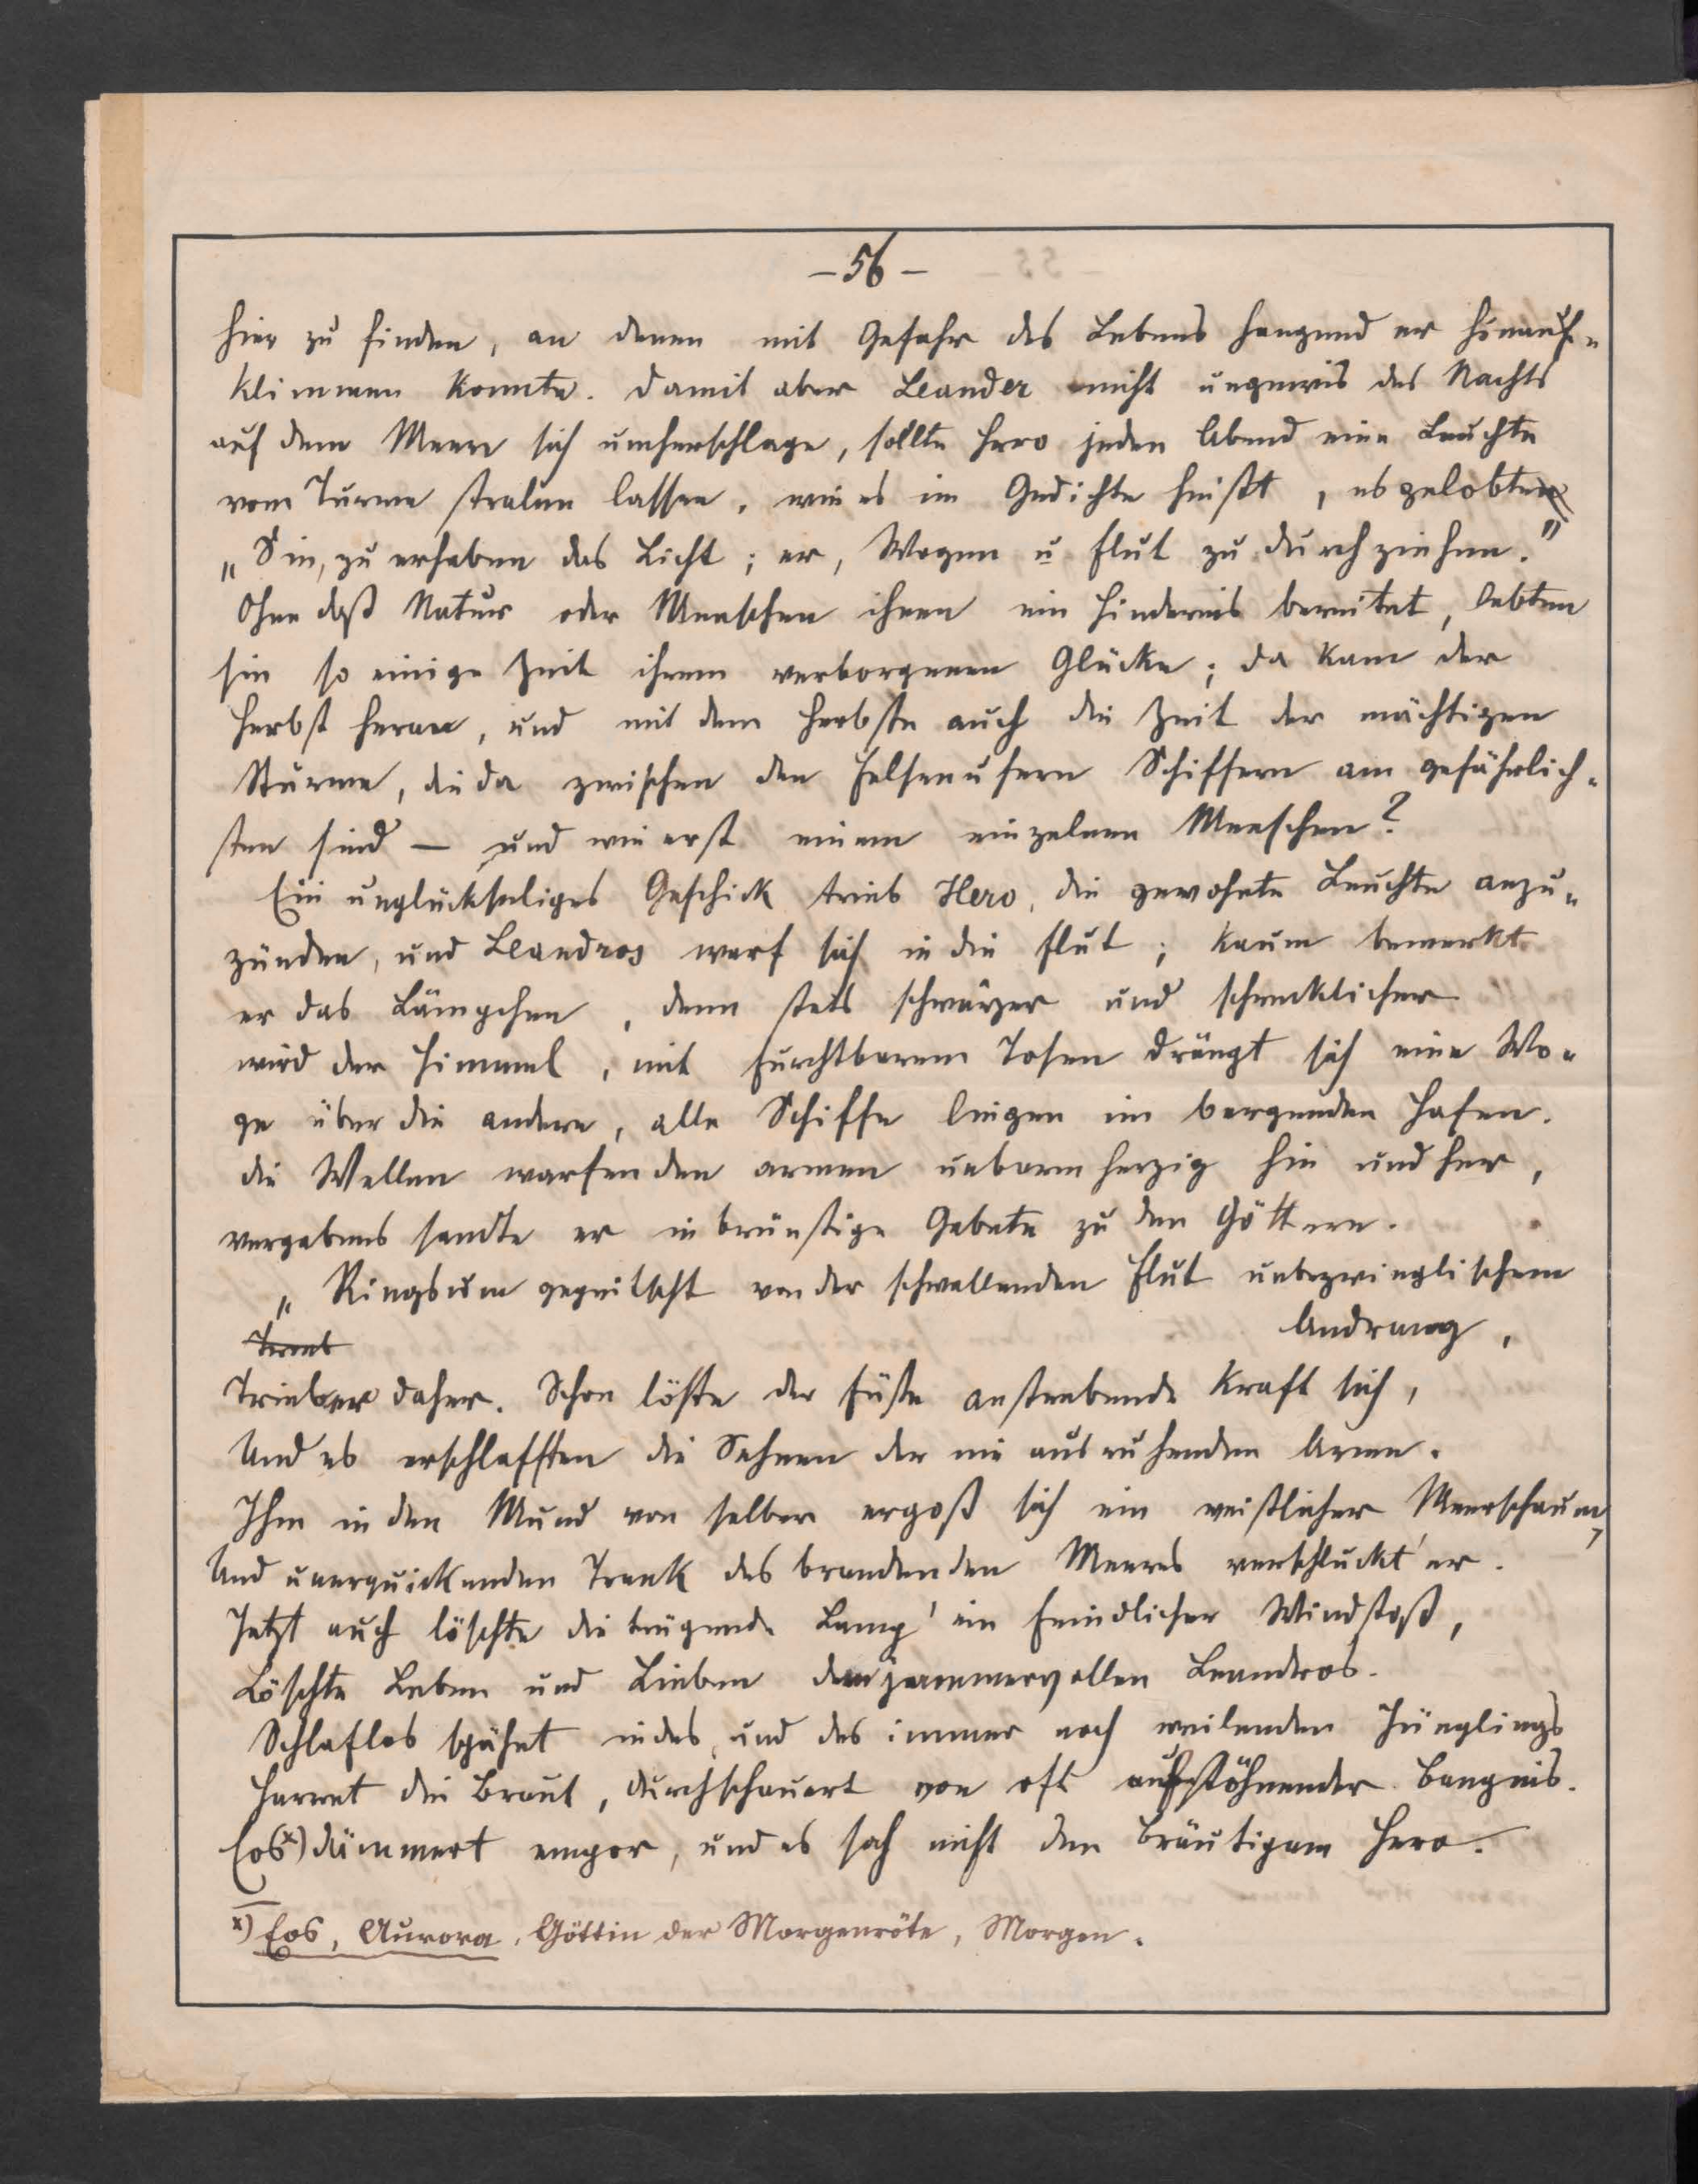 – 56 –
hier zu finden, an denen mit Gefahr des Lebens hangend er hinauf-
klimmen konnte. Damit aber Leander nicht ungewis des Nachts
auf dem Meere sich umherschlage, sollte Hero jeden Abend eine Leuchte
vom Turme stralen lassen, wie es im Gedichte heißt, es gelobten
„Sie, zu erheben das Licht; er, Wogen u Flut zu durchziehen."
Ohne daß Natur oder Menschen ihnen ein Hindernis bereitet, lebten
sie so einige Zeit ihrem verborgenen Glücke; da kam der
Herbst heran, und mit dem Herbste auch die Zeit der mächtigen
Stürme, die da zwischen den Felsenufern Schiffern am gefährlich-
sten sind — und wie erst einem einzelnen Menschen?
Ein unglückseliges Geschick trieb Hero, die gewohnte Leuchte anzu-
zünden, und Leandros warf sich in die Flut; kaum bemerkt
er das Lämpchen, denn stets schwärzer und schrecklicher
wird der Himmel, mit furchtbarem Tosen drängt sich eine Wo-
ge über die andere, alle Schiffe liegen im bergenden Hafen.
die Wellen warfen den armen unbarmherzig hin und her,
vergebens sandte er inbrünstige Gebete zu den Göttern.
„Ringsum gepeitscht von der schwellenden Flut unbezwinglischem
Andrang,
Trieb er daher. Schon löste der Füße anstrebende Kraft sich,
Und es erschlafften die Sehnen der nie ausruhenden Arme.
Ihm in den Mund von selber ergoß sich ein weißlicher Meerschaum,
Und unerquickenden Trank des brandenden Meeres verschluckt' er.
Jetzt auch löschte die trügende Lamp' ein feindlicher Windstoß,
Löschte Leben und Lieben dem jammervollen Leandros.
Schlaflos spähet indes, und des immer noch weilenden Jünglings
Harret die Braut, durchschauert von oft aufstöhnender Bangnis.
Eos x) dämmert empor, und es sah nicht den Bräutigam Hero.
x) Eos, Aurora, Göttin der Morgenröte, Morgen.